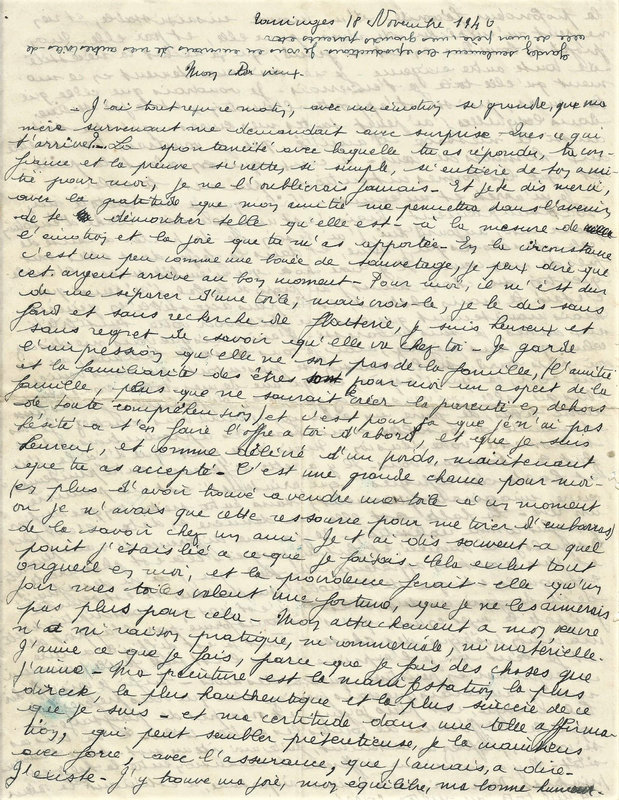 18 Novembre 1940
gardez seulement les reproductions, je vous en enverrais de mes autres toiles de
celle de mon père, mes grands parents etc
Mon cher vieux.
- J'ai tout reçu ce matin, avec une émotion si grande, que ma
mère survenant me demandait avec surprise Qu'es ce qui
t'arrive? - La spontanéité avec laquelle tu as répondu, ta con-
fiance et la preuve si nette, si simple, si entière de ton ami-
tié pour moi, je ne l'oublierais jamais - Et je te dis merci,
avec la gratitude que mon amitié me permettra dans l'avenir
de te démontrer telle qu'elle est - à la mesure de
l'émotion et la joie que tu m'as apportée - En la circonstance
c'est un peu comme une bouée de sauvetage, je peux dire que
cet argent arrive au bon moment - Pour moi, il m'est dur
de me séparer d'une toile, mais crois-le, je le dis sans
fard et sans recherche de flatterie, je suis heureux et
sans regret de savoir qu'elle va chez toi - Je garde
l'impression qu'elle ne sort pas de la famille, (l'amitié
et la familiarité des êtres sont pour moi un aspect de la
famille, plus que ne saurait créer la parenté en dehors
de toute compréhension) et c'est pour ça que je n'ai pas
hésité a t'en faire l'offre a toi d'abord, et que je suis
heureux, et comme délivré d'un poids, maintenant
que tu as accepté - C'est une grande chance pour moi -
(en plus d'avoir trouvé a vendre ma toile a un moment
ou je n'avais que cette ressource pour me tirer d'embarras)
de la savoir chez un ami - Je t'ai dis souvent a quel
point j'étais lié a ce que je faisais - Cela exclut tout
orgueil en moi, et la providence ferait-elle qu'un
jour mes toiles valent une fortune, que je ne les aimerais
pas plus pour cela - Mon attachement a mon œuvre
n'a ni raison pratique, ni commerciale, ni matérielle -
J'aime ce que je fais, parce que je fais des choses que
j'aime - Ma peinture est la manifestation la plus
direct la plus hauthentique et la plus sincère de ce
que je suis - et ma certitude dans une telle affirma-
tion, qui peut sembler prétentieuse, je la maintiens
avec force, avec l'assurance, que j'aurais, a dire -
J'existe - J'y trouve ma joie, mon équilibre, ma bonne humeur -